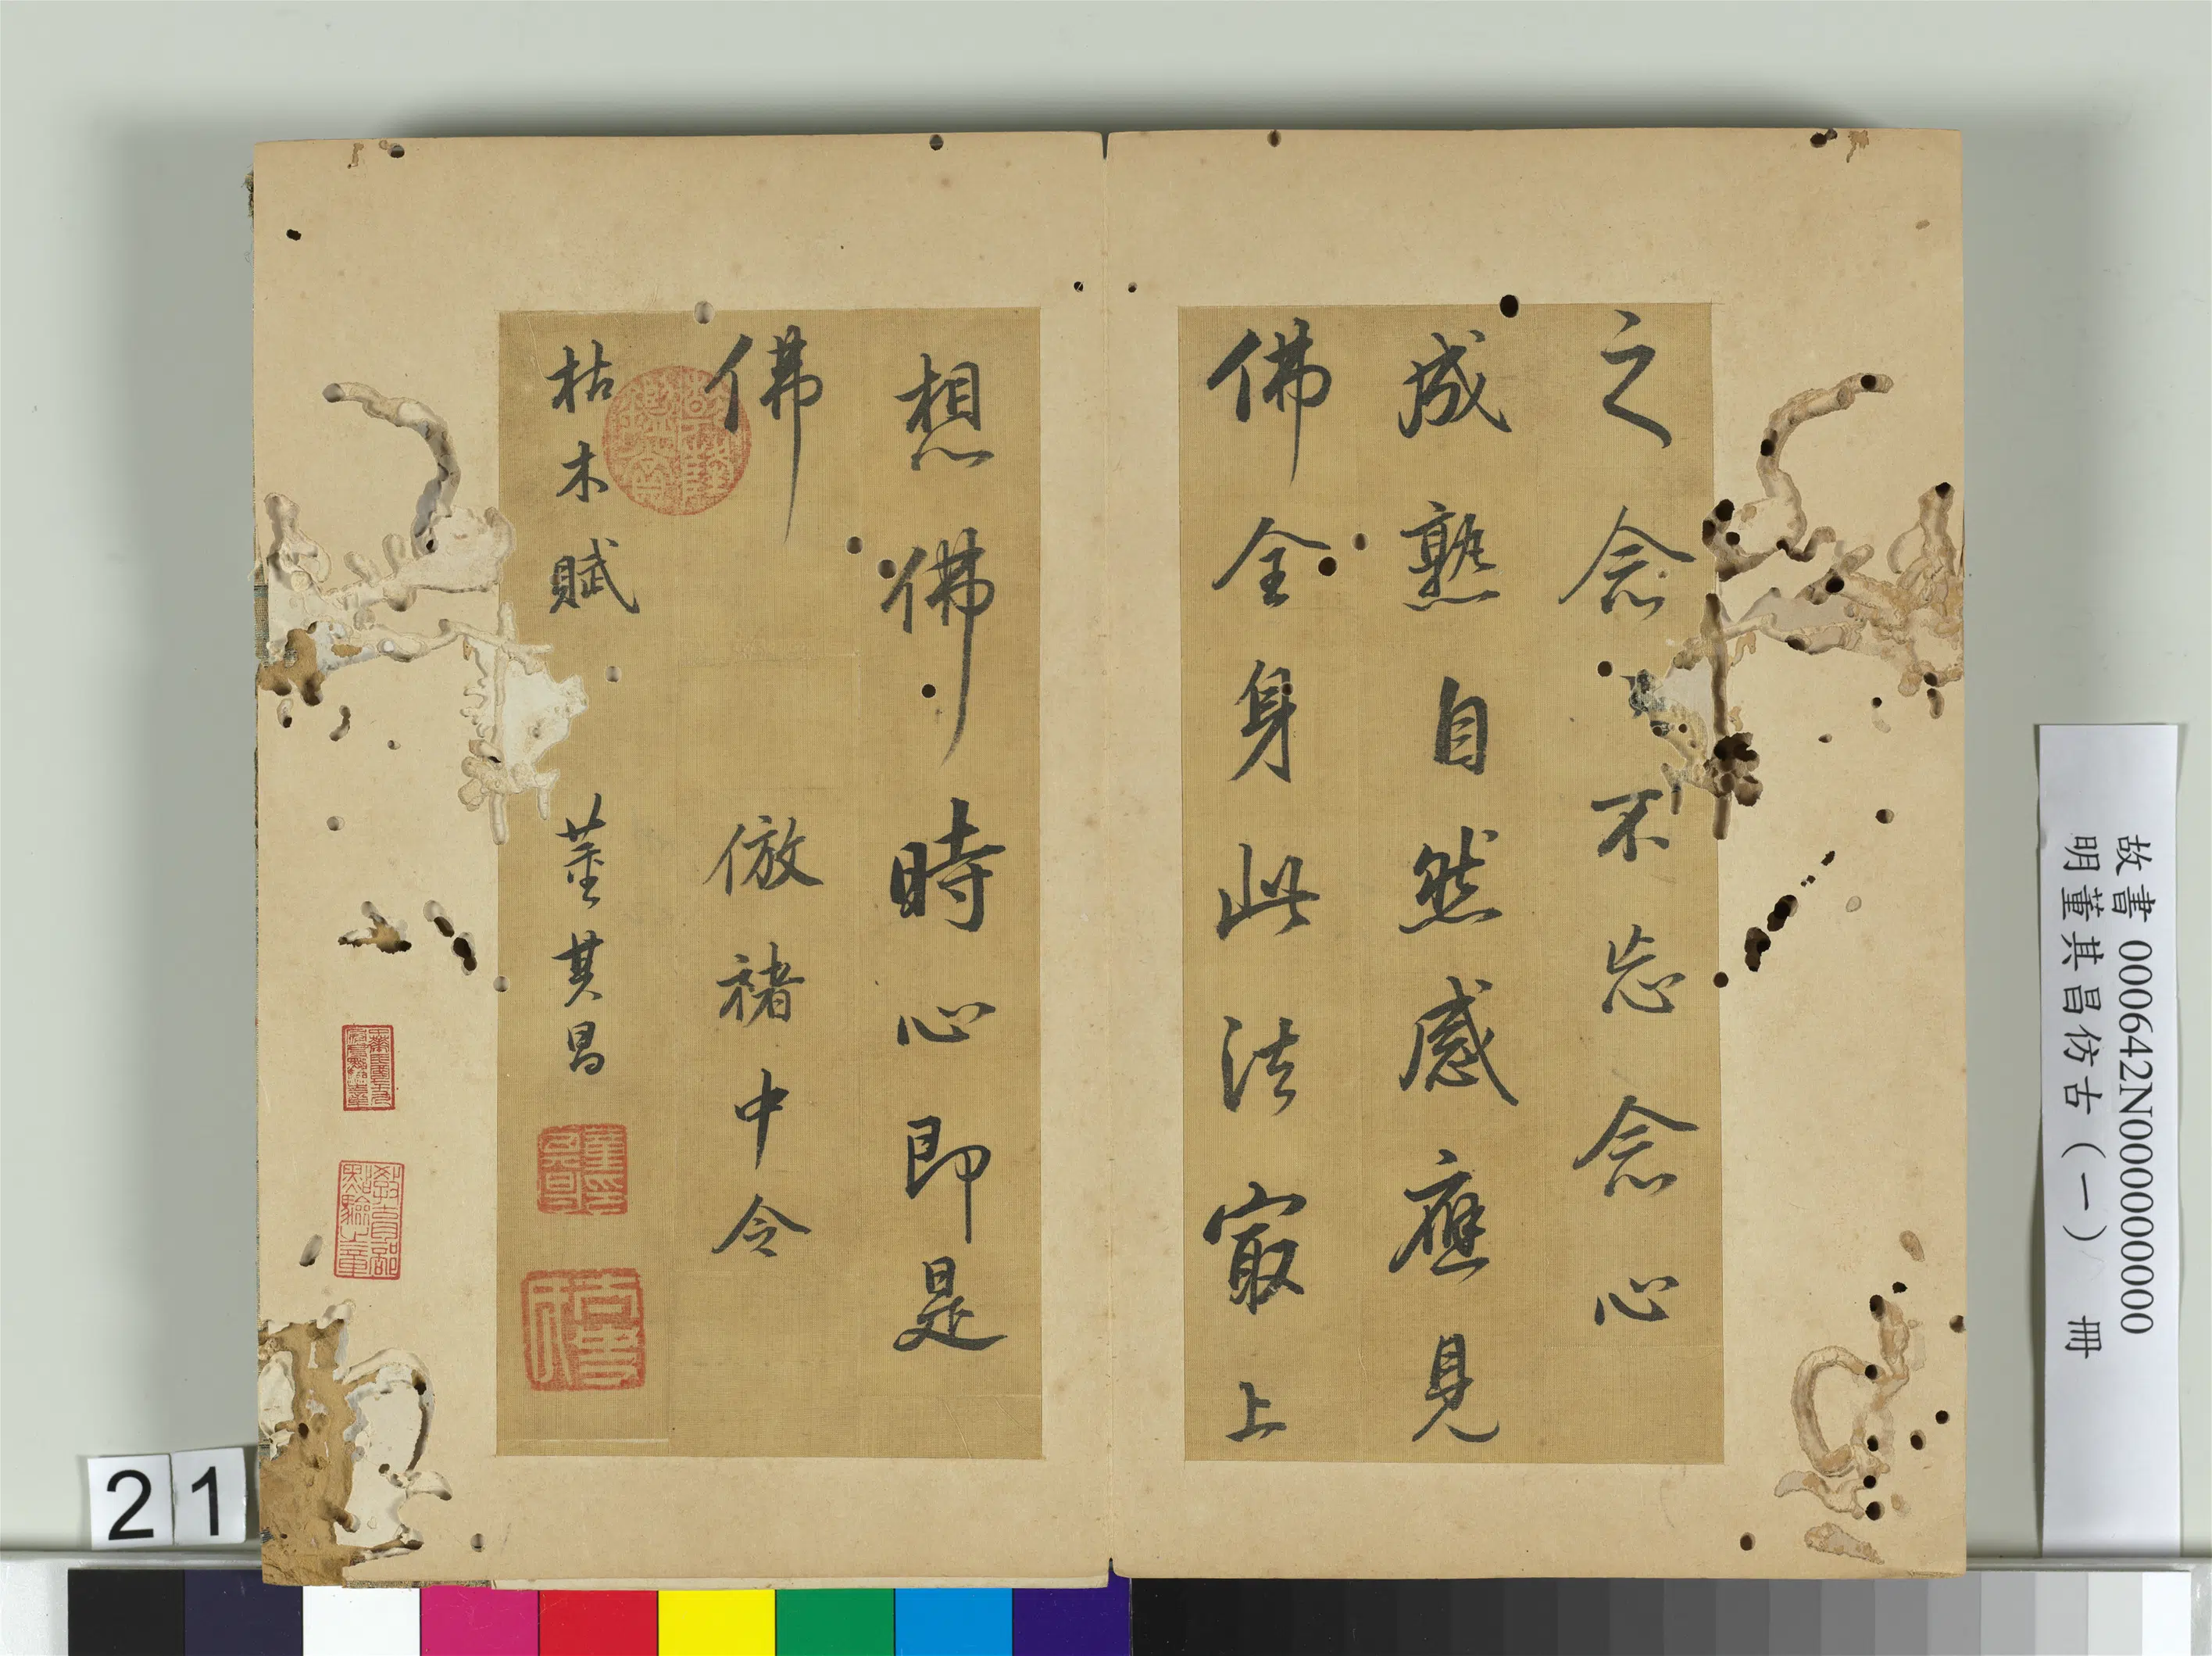 之念念不忘念心
成熟自然感應見
佛全身此法最上
想佛佛時心即是
佛 倣褚中令
枯木賦 董其昌
教育部點驗之章
故書 000642N000000000
明董其昌仿古(一) 冊
21